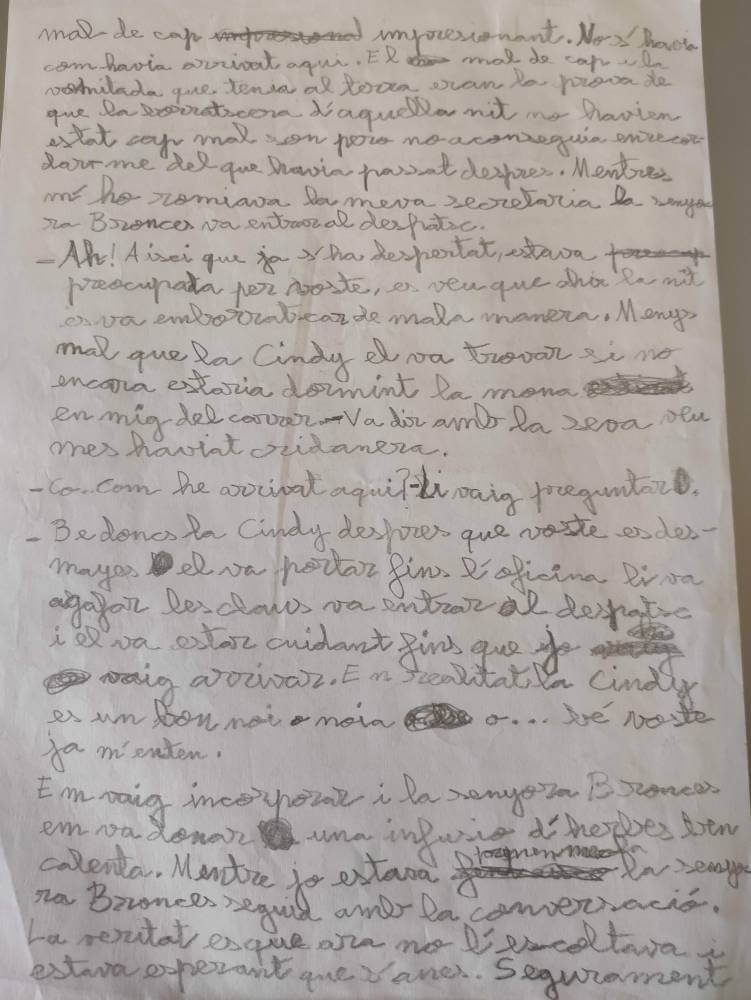 mal de cap impresionant. No s'havia
com havia arrivat aqui. El mal de cap i la
vomitada que tenia al terra eran la prova de
que la borratxera d'aquella nit no havien
estat cap mal son pero no aconseguia enrecor-
darme del que havia passat despres. Mentres
m'ho romiava la meva secretaria la senyo-
ra Bronces va entrar al despatx.
- Ah! Aixi que ja s'ha despertat, estava
preocupada per voste, es veu que ahir la nit
es va emborratxar de mala manera. Menys
mal que la Cindy el va trovar si no
encara estaria dormint la mona
en mig del carrer. - Va dir amb la seva veu
mes haviat cridanera.
- Co.. Com he arrivat aqui? - Li vaig preguntar.
- Be doncs la Cindy despres que voste es des-
mayes el va portar fins l'oficina li va
agafar les claus va entrar al despatx
i el va estar cuidant fins que jo
vaig arrivar. En realitat la Cindy
es un bon noi o noia o... bé voste
ja m'enten.
Em vaig incorporar i la senyora Bronces
em va donar una infusio d'herbes ben
calenta. Mentre jo estava la senyo-
ra Bronces seguid amb la conversació.
La veritat es que ara no l'escoltava i
estava esperant que s'anes. Segurament